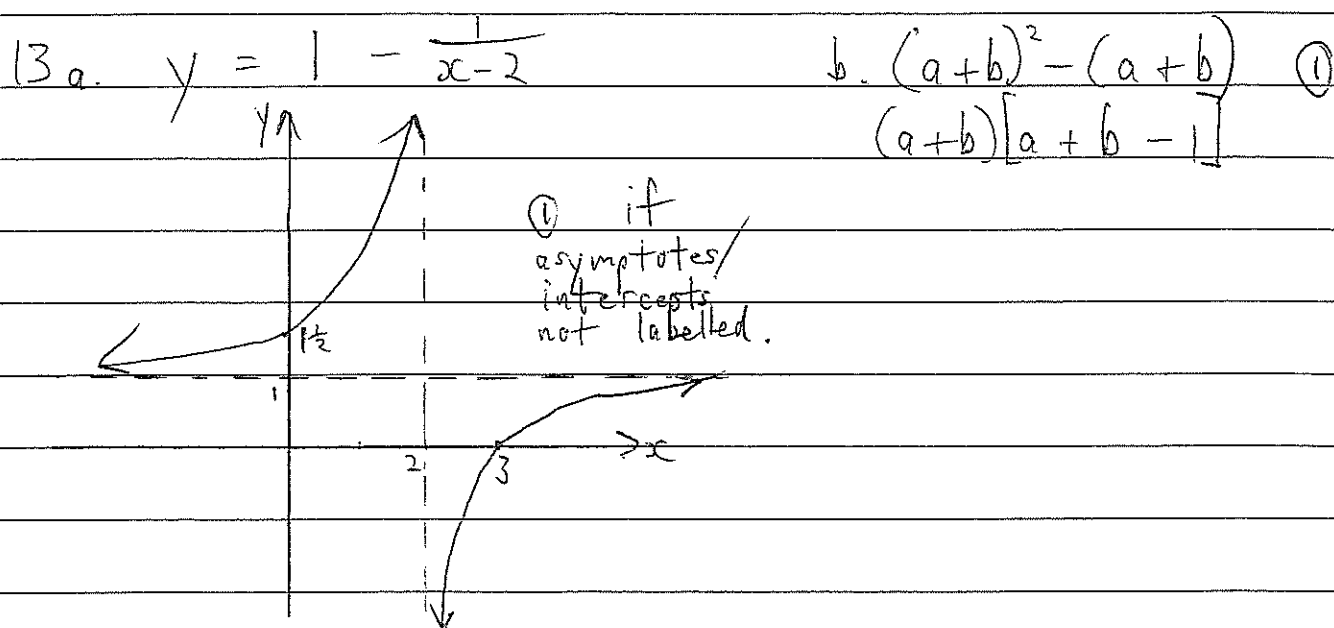 13 a. y = 1 - 1/(x-2)
b. (a+b)² - (a+b) ①
(a+b)[a + b - 1]
y
① if
asymptotes/
intercepts
not labelled.
1½
1
2 3 x